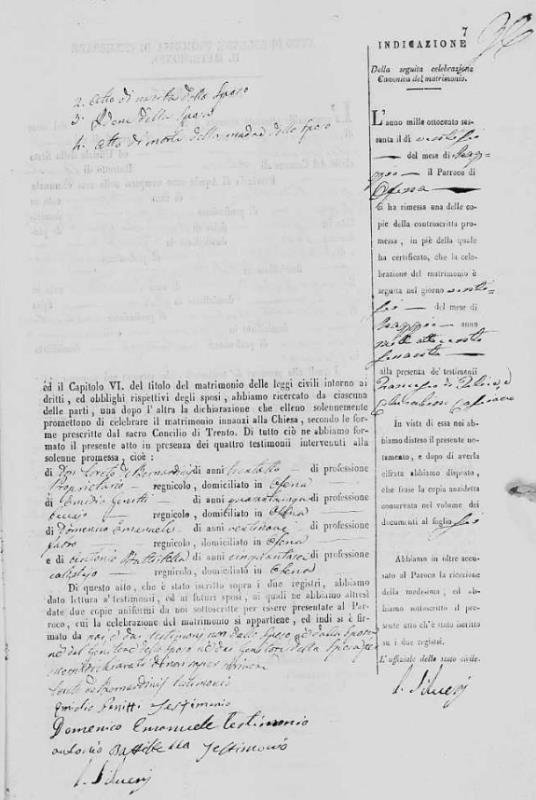 2. Atto di nascita dello Sposo
3. Idem della Sposa
4. Atto di morte della madre dello Sposo
ed il Capitolo VI. del titolo del matrimonio delle leggi civili intorno ai
dritti, ed obblighi rispettivi degli sposi, abbiamo ricercato da ciascuna
delle parti, una dopo l'altra la dichiarazione che elleno solennemente
promettono di celebrare il matrimonio innanzi alla Chiesa, secondo le for-
me prescritte dal sacro Concilio di Trento. Di tutto ciò ne abbiamo for-
mato il presente atto in presenza dei quattro testimonii intervenuti alla
solenne promessa, cioè :
di Don Loreto de Bernardinis di anni di professione
Proprietario regnicolo, domiciliato in Ofena
di Emidio di anni di professione
regnicolo, domiciliato in Ofena
di Domenico Emanuele di anni di professione
regnicolo, domiciliato in Ofena
e di Antonio Battistella di anni di professione
regnicolo, domiciliato in Ofena
Di questo atto, che è stato iscritto sopra i due registri, abbiamo
dato lettura a' testimonii, ed ai futuri sposi, ai quali ne abbiamo altresì
date due copie uniformi da noi sottoscritte per essere presentate al Par-
roco, cui la celebrazione del matrimonio si appartiene, ed indi si è fir-
mato da noi, e dai testimonj non dallo Sposo nè dalla Sposa
nè dal genitore dello Sposo nè dai genitori della Sposa
Testimonio
Emidio Testimonio
Domenico Emanuele Testimonio
Antonio Battistella Testimonio
7
INDICAZIONE
Della seguita celebrazione
Canonica del matrimonio.
L'anno mille ottocento ses-
santa il dì ventisei
del mese di Mag-
gio il Parroco di
Ofena
ci ha rimessa una delle co-
pie della controscritta pro-
messa, in piè della quale
ha certificato, che la cele-
brazione del matrimonio è
seguita nel giorno venti-
sei del mese di
Maggio anno
mille ottocento
sessanta
alla presenza de' testimonii
Francesco di
In vista di essa noi ab-
biamo disteso il presente no-
tamento, e dopo di averla
cifrata abbiamo disposto,
che fusse la copia anzidetta
conservata nel volume dei
documenti al foglio
Abbiamo in oltre accu-
sato al Paroco la ricezione
della medesima, ed ab-
biamo sottoscritto il pre-
sente atto ch'è stato iscritto
su i due registri.
L'uffiziale dello stato civile.